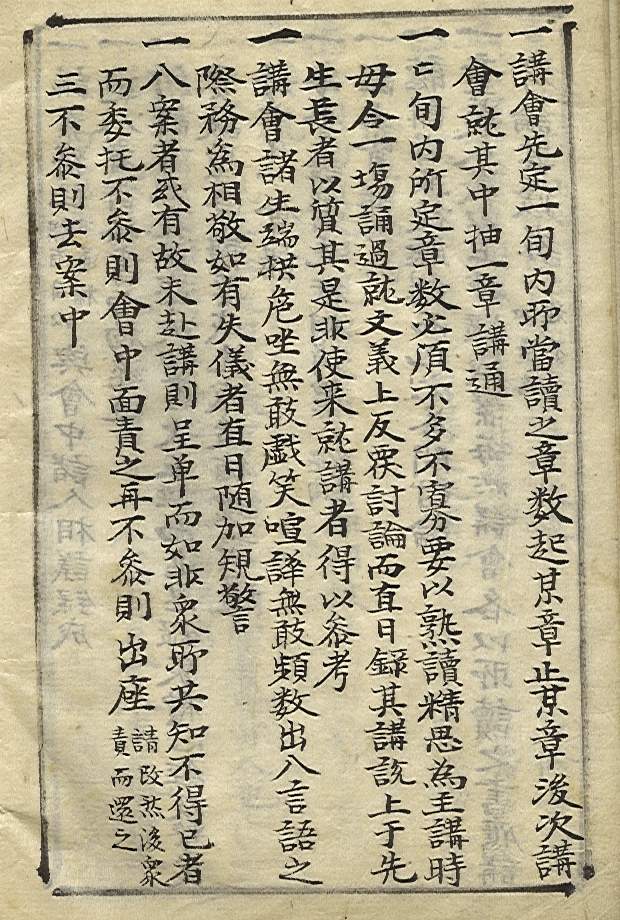 一講會先定一旬內所當讀之章数起某章止某章後次講
會就其中抽一章講通
一亡旬內所定章数必須不多不寡要以熟讀精思為主講時
毋令一塲誦過就文義上反覆討論而直日錄其講說上于先
生長者以質其是非使来就講者得以叅考
一講會諸生端拱危坐無敢戱笑喧譁無敢頻数出入言語之
際務為相敬如有失儀者直日随加規警
一入案者或有故未赴講則呈单而如非衆所共知不得已者
而委托不叅則會中面責之再不叅則出座請改然後衆
責而還之
三不叅則去案中